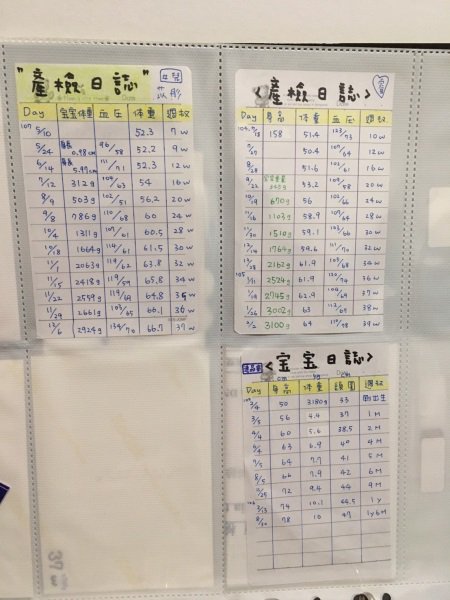 "產檢日誌"
Day 宝宝体重 血圧 体重 週数
107 5/10 52.3 7w
5/24 0.98cm 96/58 52.2 9w
6/14 5.97cm 111/71 52.3 12w
7/12 312g 109/63 54 16w
8/9 503g 102/51 56.2 20w
9/8 786g 110/68 60 24w
10/4 1311g 107/61 60.5 28w
10/18 1664g 114/61 61.5 30w
11/1 2063g 119/62 63.8 32w
11/15 2418g 119/59 65.8 34w
11/22 2559g 119/69 64.8 35w
11/29 2661g 103/65 66.1 36w
12/6 2924g 134/70 66.7 37w
<產檢日誌>
Day 身高 体重 血圧 週数
104 158 51.4 123/73 10w
50.4 107/64 12w
8/28 51.6 102/61 16w
9/22 53.2 109/58 20w
10/19 670g 56 102/66 24w
11/16 1103g 58.9 107/64 28w
11/30 1510g 59.1 123/66 30w
12/14 1764g 59.6 111/70 32w
12/28 2162g 61.9 103/68 34w
105 1/11 2524g 61.9 120/74 36w
1/19 2745g 62.9 104/69 37w
1/26 3002g 63 112/69 38w
2/2 3100g 64 110/58 39w
<宝宝日誌>
cm kg cm
Day 身高 体重 頭圍 週数
2/4 50 3180g 33 剛出生
3/5 56 4.4 37 1M
4/4 60 5.6 38.5 2M
6/4 63 6.9 40 4M
7/5 64 7.7 41 5M
8/5 66 7.9 42 6M
11/25 72 9.4 44 9M
106 2/13 74 10.1 44.5 1y
8/30 78 10 47 1y6M